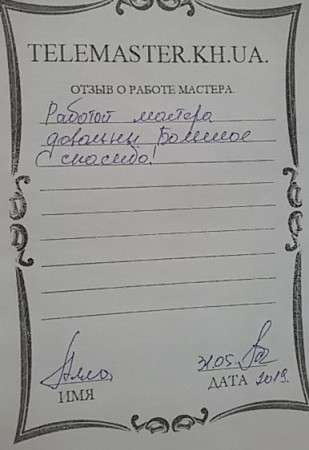 TELEMASTER.KH.UA.
ОТЗЫВ О РАБОТЕ МАСТЕРА.
Работой мастера
довольны Большое
спасибо!
31.05.
ИМЯ
ДАТА 2019.